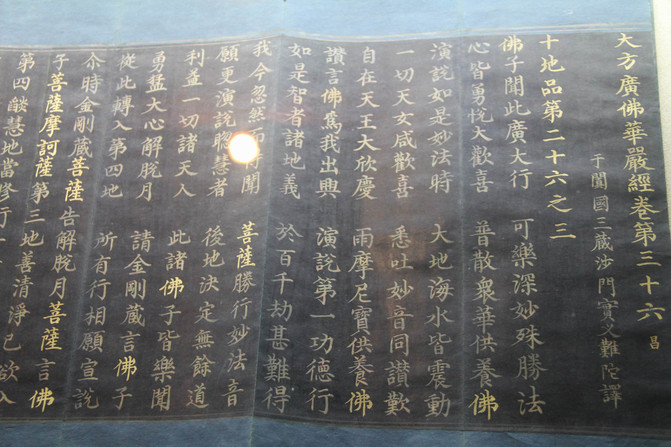 大方廣佛華嚴經卷第三十六 昌
于闐國三藏沙門實叉難陀譯
十地品第二十六之三
佛子聞此廣大行 可樂深妙殊勝法
心皆勇悅大歡喜 普散眾華供養佛
演說如是妙法時 大地海水皆震動
一切天女咸歡喜 悉吐妙音同讚歎
自在天王大欣慶 雨摩尼寶供養佛
讚言佛爲我出興 演說第一功德行
如是智者諸地義 於百千劫甚難得
我今忽然而得聞 菩薩勝行妙法音
願更演說聦慧者 後地決定無餘道
利益一切諸天人 此諸佛子皆樂聞
勇猛大心解脫月 請金剛藏言佛子
從此轉入第四地 所有行相願宣說
尒時金剛藏菩薩告解脫月菩薩言佛
子菩薩摩訶薩第三地善清淨已欲入
第四燄慧地當修行